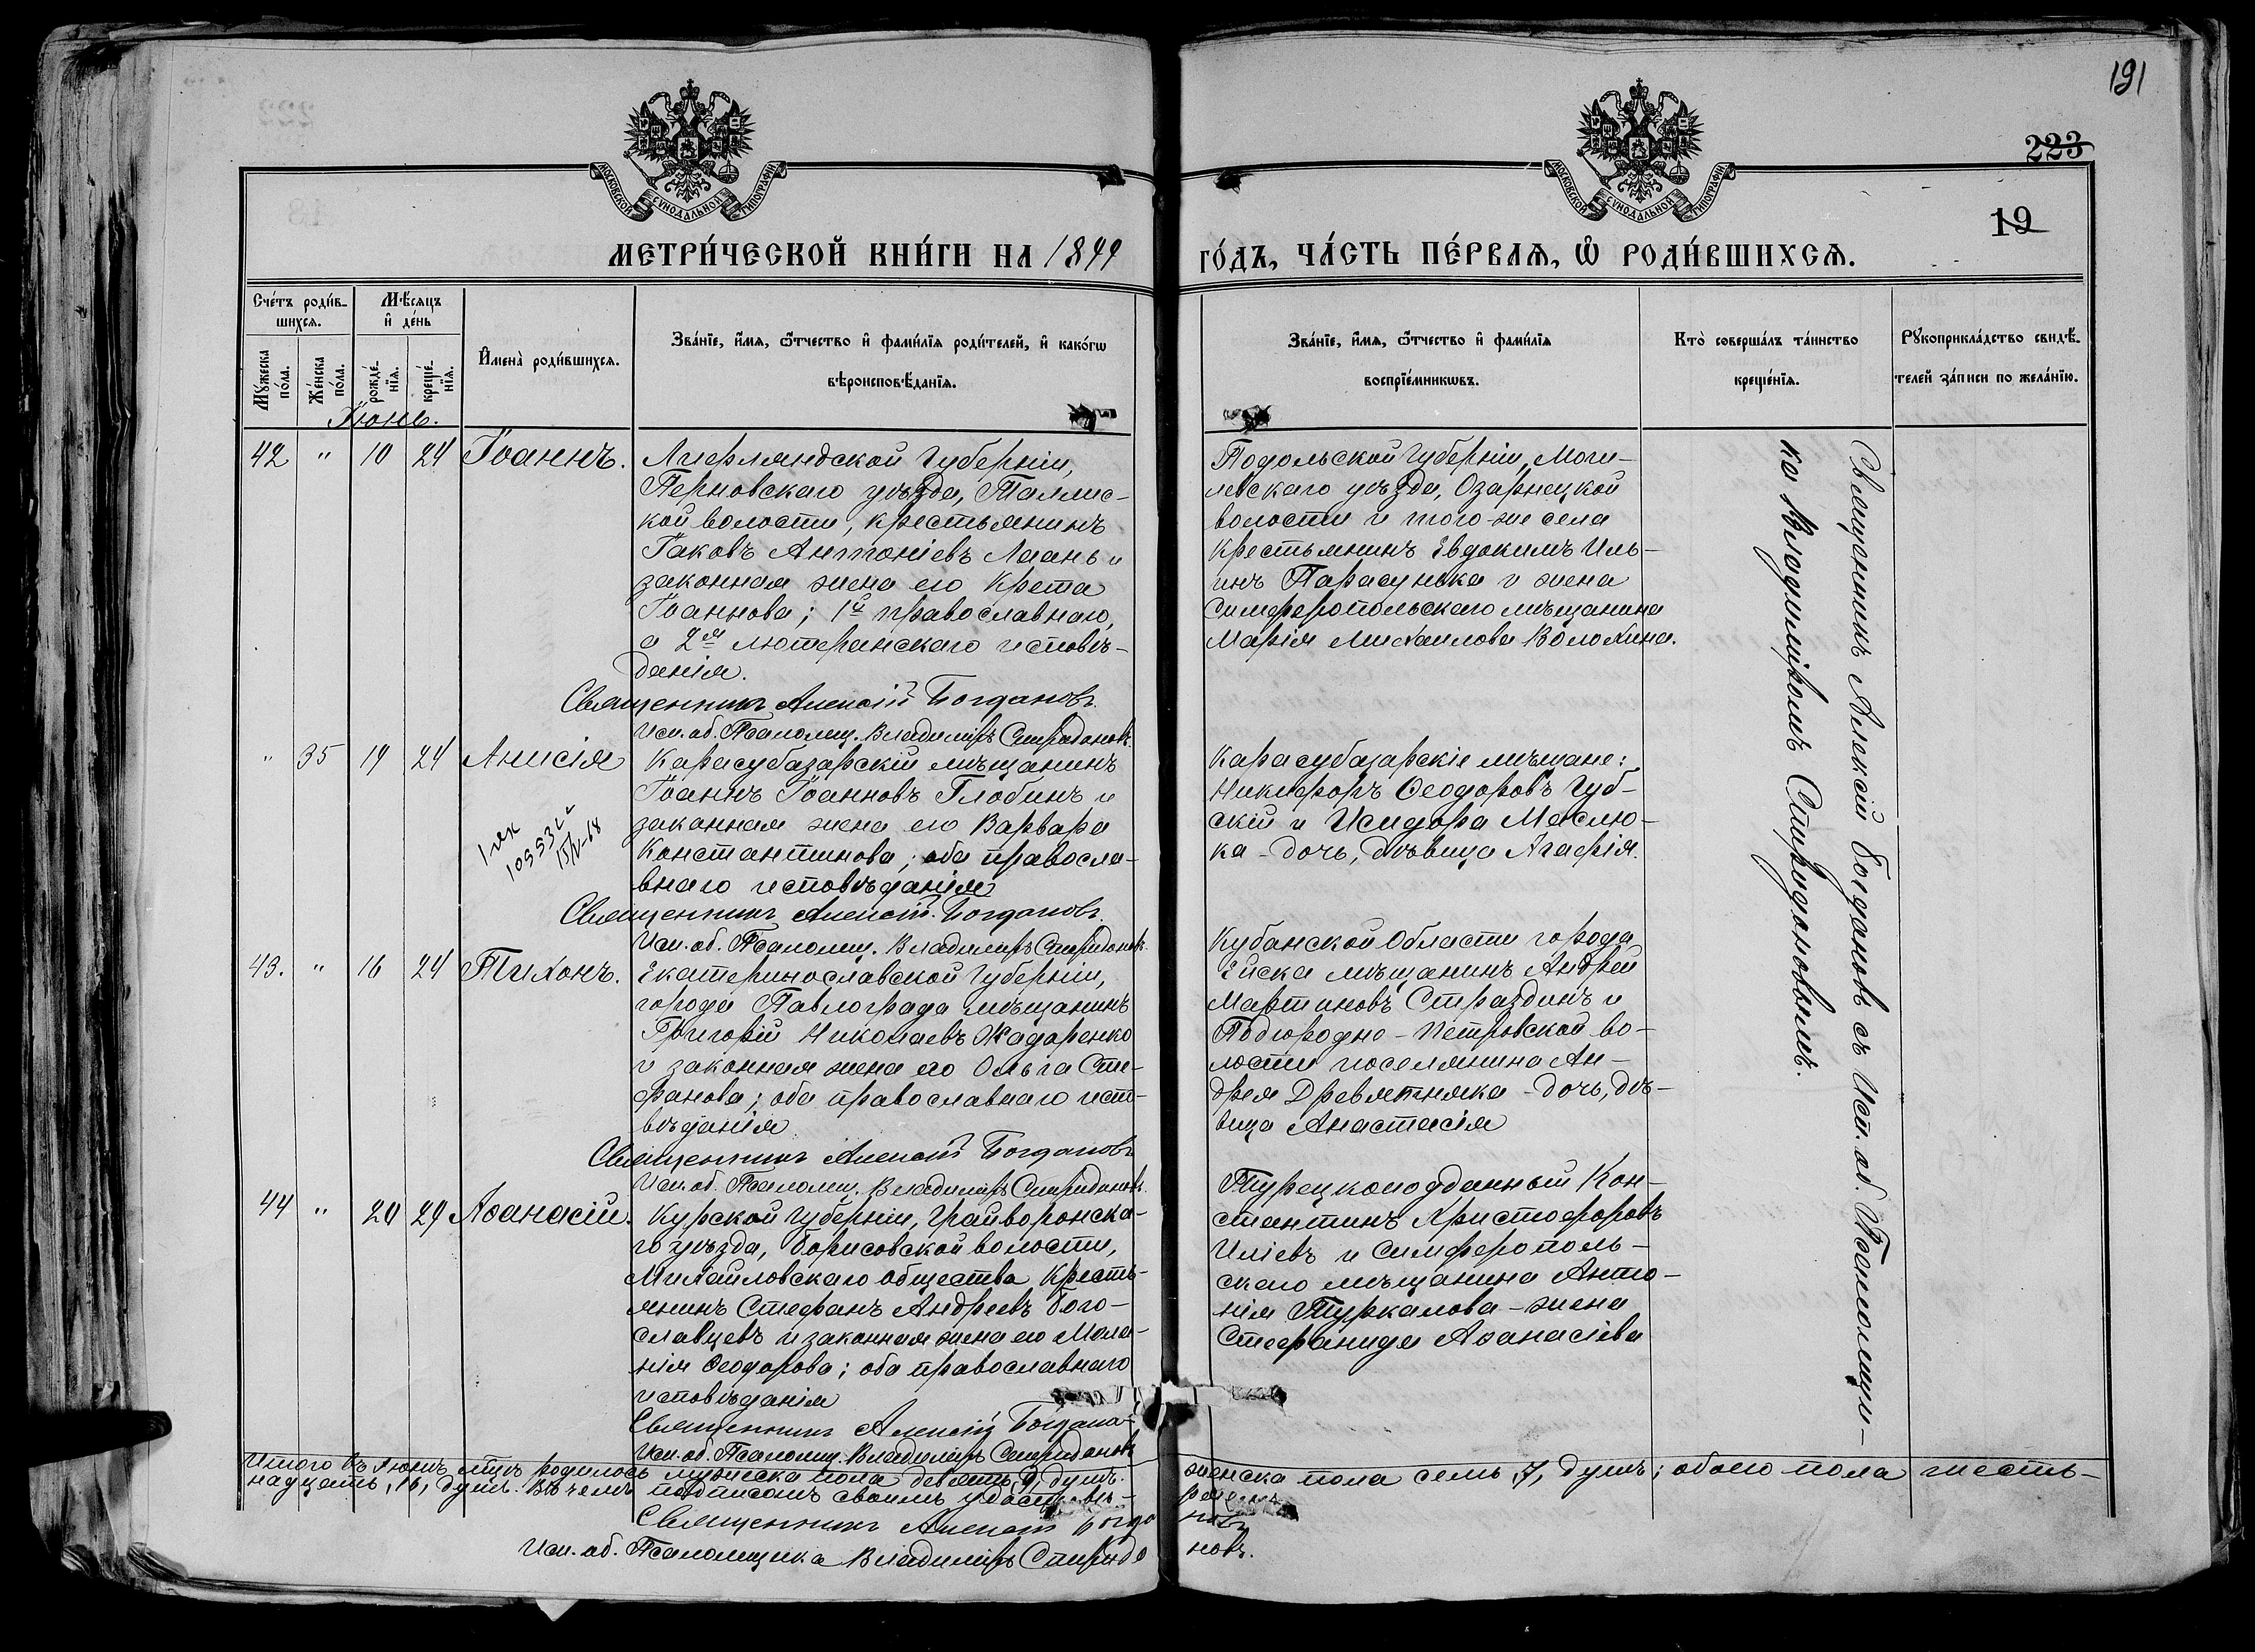 191
223
19
МОСКОВСКОЙ СѴНОДАЛЬНОЙ ТИПОГРАФІИ
МОСКОВСКОЙ СѴНОДАЛЬНОЙ ТИПОГРАФІИ
МЕТРИ́ЧЕСКОЙ КНИ́ГИ НА 1899
ГО́ДЪ, ЧА́СТЬ ПЕ́РВАЯ, Ѽ РОДИ́ВШИХСЯ.
Сче́тъ роди́в-
шихся.
Мꙋ́жеска по́ла.
Же́нска по́ла.
Мѣ́сяцъ и҆ де́нь
рожде́-нїя.
креще́-нїя.
И҆мена̀ роди́вшихся.
Зва́нїе, и҆́мя, ѻ҆́тчество и҆ фами́лїя роди́телей, и҆ како́гѡ
вѣроисповѣ́данїя.
Зва́нїе, и҆́мя, ѻ҆́тчество и҆ фами́лїя
воспрїе́мникѡвъ.
Кто̀ соверша́лъ та́инство
креще́нїя.
Рꙋкоприкла́дство свидѣ́-
телей за́писи по жела́нїю.
Іюнь.
42 " 10 24 Іоаннъ.
Лифляндской Губерніи,
Перновскаго уѣзда, Таллис-
кой волости, крестьянинъ
Іаковъ Антоніевъ Лаань и
законная жена его Крета
Іоаннова; 1й православнаго,
а 2я лютеранскаго исповѣ-
данія.
Священникъ Алексій Богдановъ.
Исп. об. Псаломщ. Владиміръ Спиридоновъ.
Подольской Губерніи, Моги-
левскаго уѣзда, Озаринецкой
волости и того-же села
крестьянинъ Евдокимъ Иль-
инъ Парасунька и жена
Симферопольскаго мѣщанина
Марія Михаилова Волохина.
" 35 19 24 Анисія
Карасубазарскій мѣщанинъ
Іоаннъ Іоанновъ Глобинъ и
законная жена его Варвара
Константинова; оба правосла-
внаго исповѣданія
Священникъ Алексій Богдановъ.
Исп. об. Псаломщ. Владиміръ Спиридоновъ.
Карасубазарскіе мѣщане:
Никифоръ Ѳеодоровъ Губ-
скій и Исидора Маслю-
ка - дочь, дѣвица Агафія.
43. " 16 24 Тихонъ.
Екатеринославской Губерніи,
города Павлограда мѣщанинъ
Григорій Николаевъ Жадаренко
и законная жена его Ольга Сте-
фанова; оба православнаго испо-
вѣданія
Священникъ Алексій Богдановъ
Исп. об. Псаломщ. Владиміръ Спиридоновъ.
Кубанской Области города
Ейска мѣщанинъ Андрей
Мартиновъ Страздинъ и
Подгородно-Петровской во-
лости поселянина Ан-
дрея Древятняка - дочь, дѣ-
вица Анастасія
44 " 20 29 Аѳанасій.
Курской Губерніи, Грайворонска-
го уѣзда, Борисовской волости,
Михаиловскаго общества кресть-
янинъ Стефанъ Андреевъ Бого-
славцевъ и законная жена его Мела-
нія Ѳеодорова; оба православнаго
исповѣданія
Священникъ Алексій Богдановъ
Исп. об. Псаломщ. Владиміръ Спиридоновъ
Турецкоподданный Кон-
стантинъ Христофоровъ
Иліевъ и Симферополь-
скаго мѣщанина Анто-
нія Туркалова - жена
Стефанида Аѳанасіева
Священникъ Алексій Богдановъ съ Исп. об. Псаломщи-
ка Владиміромъ Спиридоновымъ.
Итого въ Іюнѣ мцѣ родилось мужеска пола девять, 9, душъ. женска пола семь, 7, душъ; обоего пола шесть-
надцать, 16, душъ. Въ чемъ подписомъ своимъ удостовѣ-
ряемъ
Священникъ Алексій Богдановъ
Исп. об. Псаломщика Владиміръ Спиридоновъ.